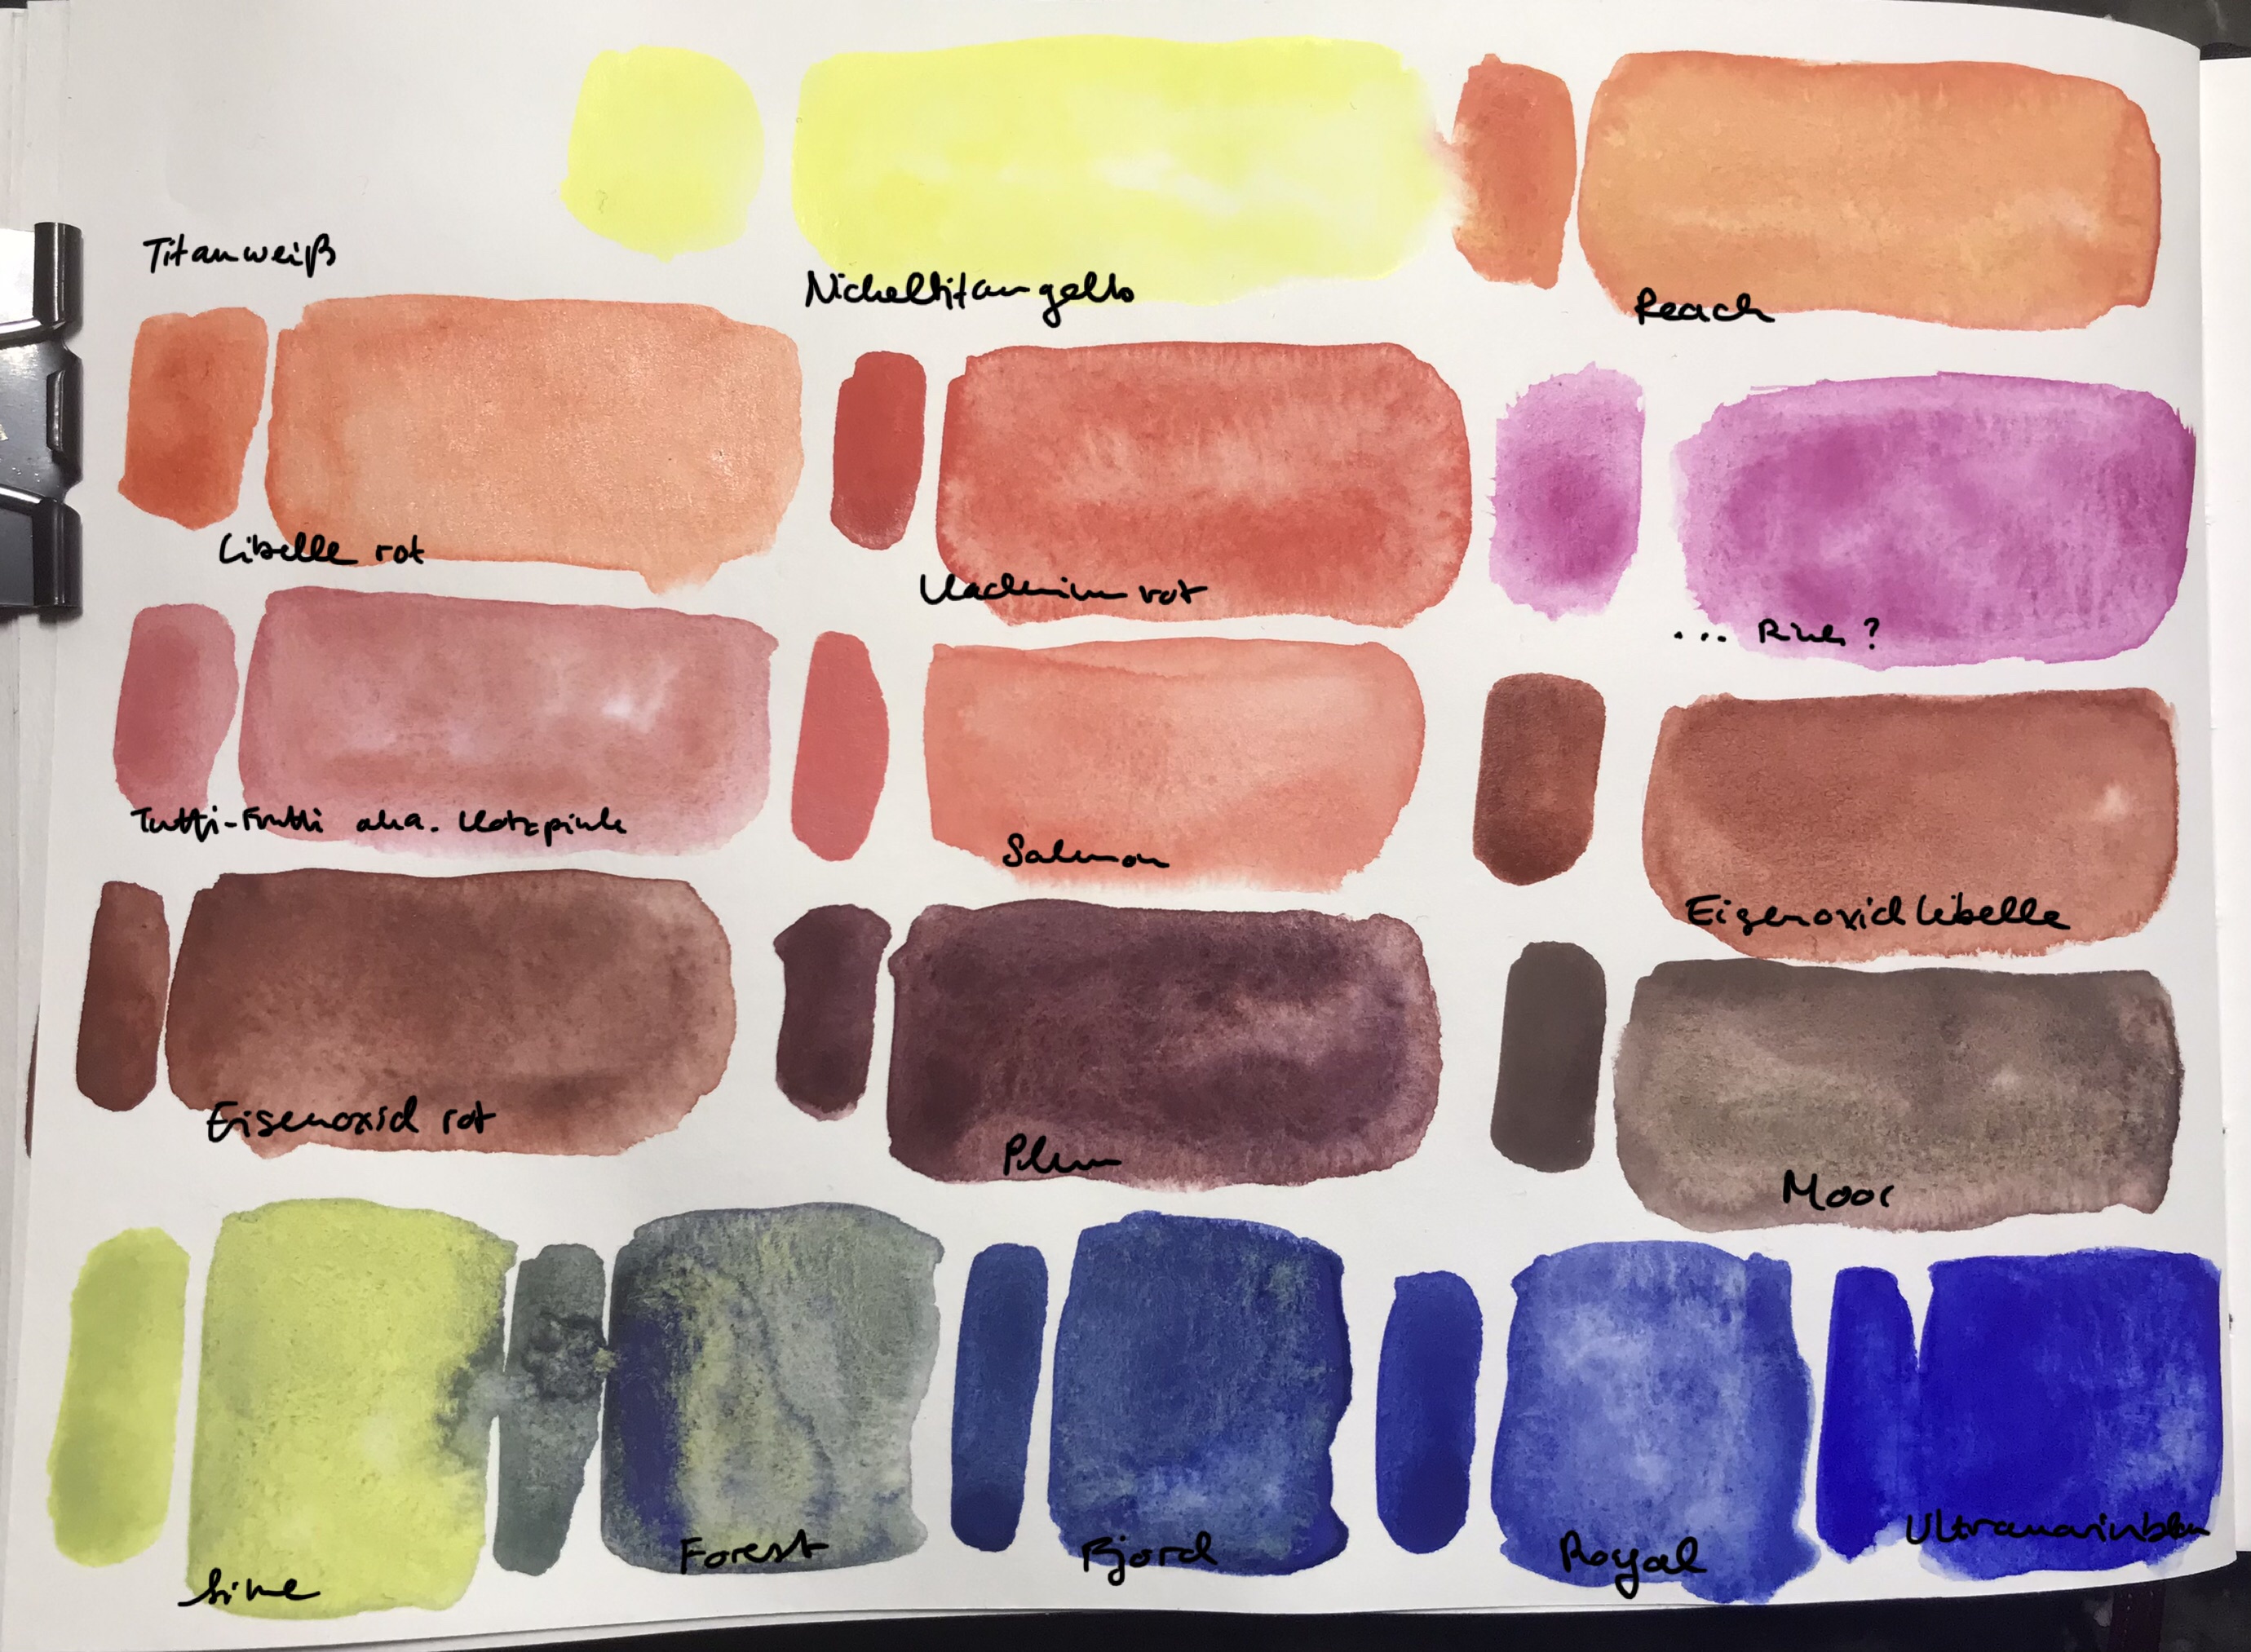 Titanweiß
Nickeltitangelb
Peach
Libelle rot
Kadmium rot
... Pink?
Tutti-Frutti aka. Kotzpink
Salmon
Eisenoxid Libelle
Eisenoxid rot
Plum
Moor
Lime
Forest
Fjord
Royal
Ultramarinblau